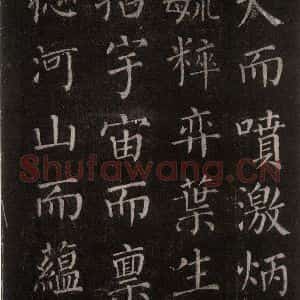 而噴激炳
毓粹弈葉生
宇宙而稟
河山而蘊
Shufawang.CN